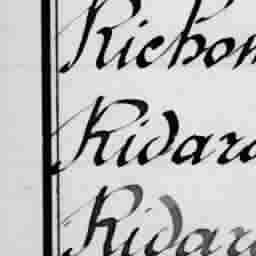 Richom
Ridard
Ridar